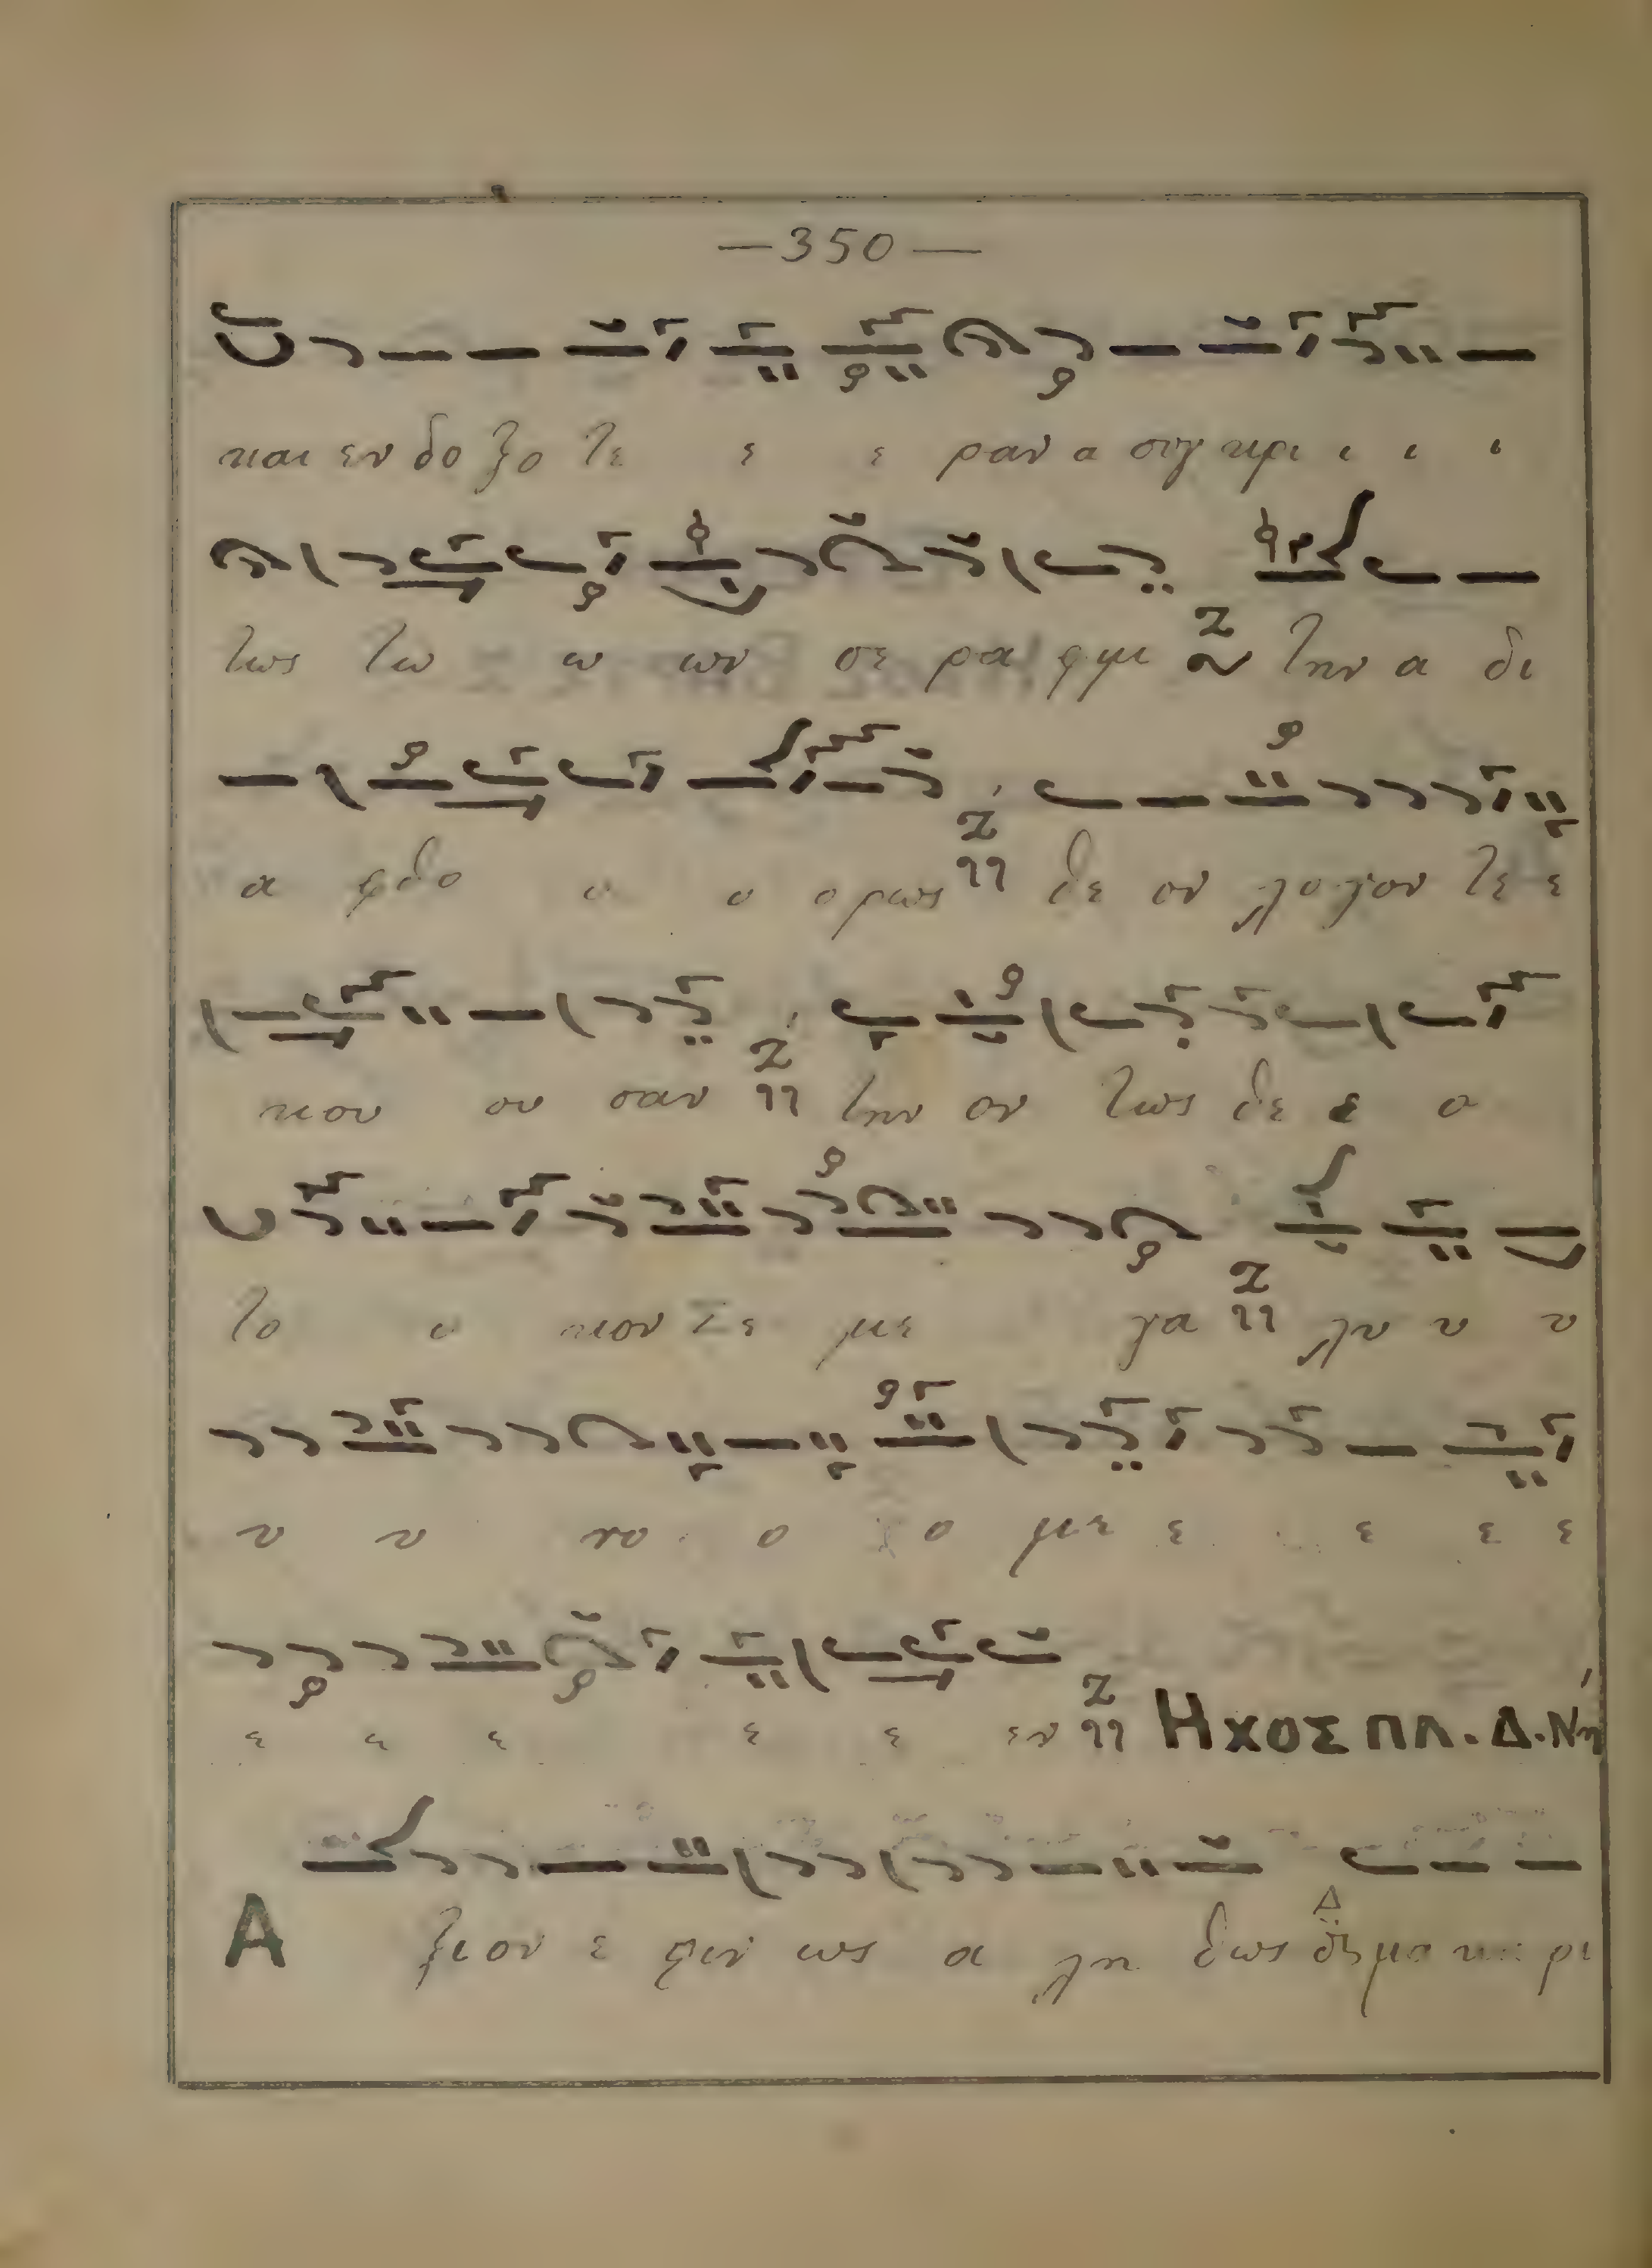 —350—
και εν δο ξο τε ε ε ραν α συγ κρι ι ι ι
τως τω ω ων σε ρα φιμ Ζ την α δι
α φθο ο ο ο ρως Ζ θε ον λο γον τε ε
κου ου σαν Ζ την ον τως θε ε ο
το ο κον Σε με γα Ζ λυ υ υ
υ υ νο ο ο με ε ε ε ε
ε ε ε ε ε εν Ζ Ηχος πλ. Δ. Νη
Α ξιον ε στιν ως α λη θως Δ μα κα ρι